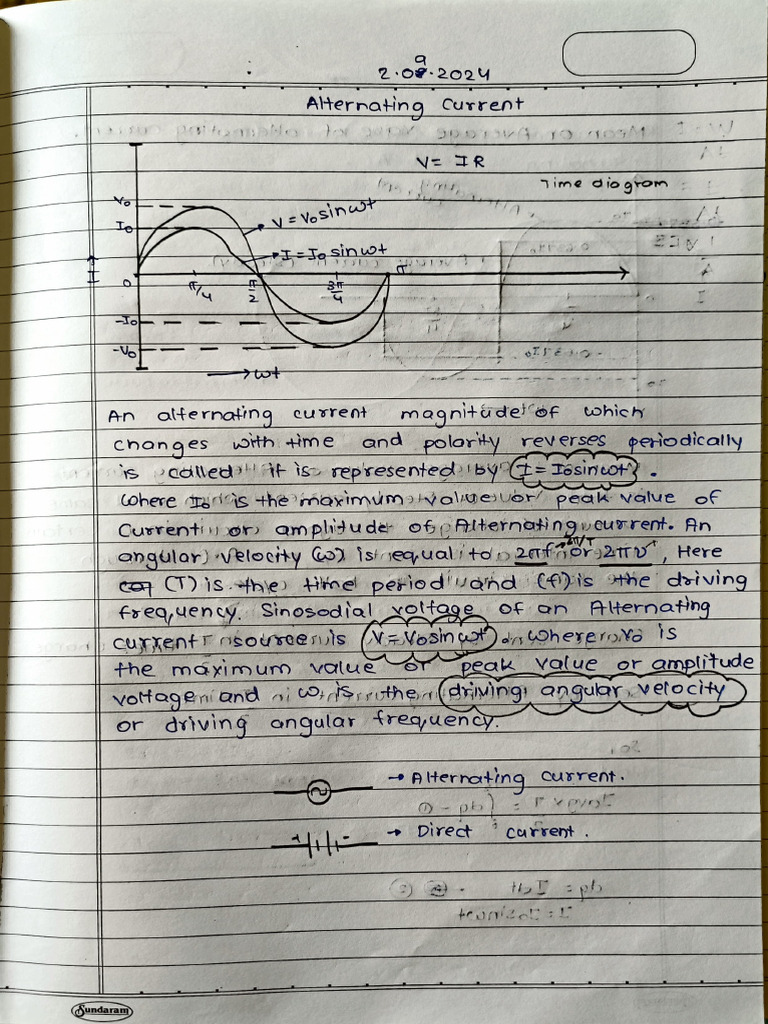 2.09.2024
Alternating Current
V = IR
Time diagram
V₀
I₀
V = V₀sinωt
I = I₀sinωt
I
0
π/4
π/2
3π/4
π
-I₀
-V₀
→ωt
An alternating current magnitude of which
changes with time and polarity reverses periodically
is called it is represented by I = I₀sinωt.
Where I₀ is the maximum value or peak value of
Current or amplitude of Alternating current. An
angular velocity (ω) is equal to 2πf or 2πν, Here
2π/T
(T) is the time period and (f) is the driving
frequency. Sinosodial voltage of an Alternating
current source is V = V₀sinωt where V₀ is
the maximum value or peak value or amplitude
voltage and ω is the driving angular velocity
or driving angular frequency.
→ Alternating current.
+ -
→ Direct current.
Sundaram